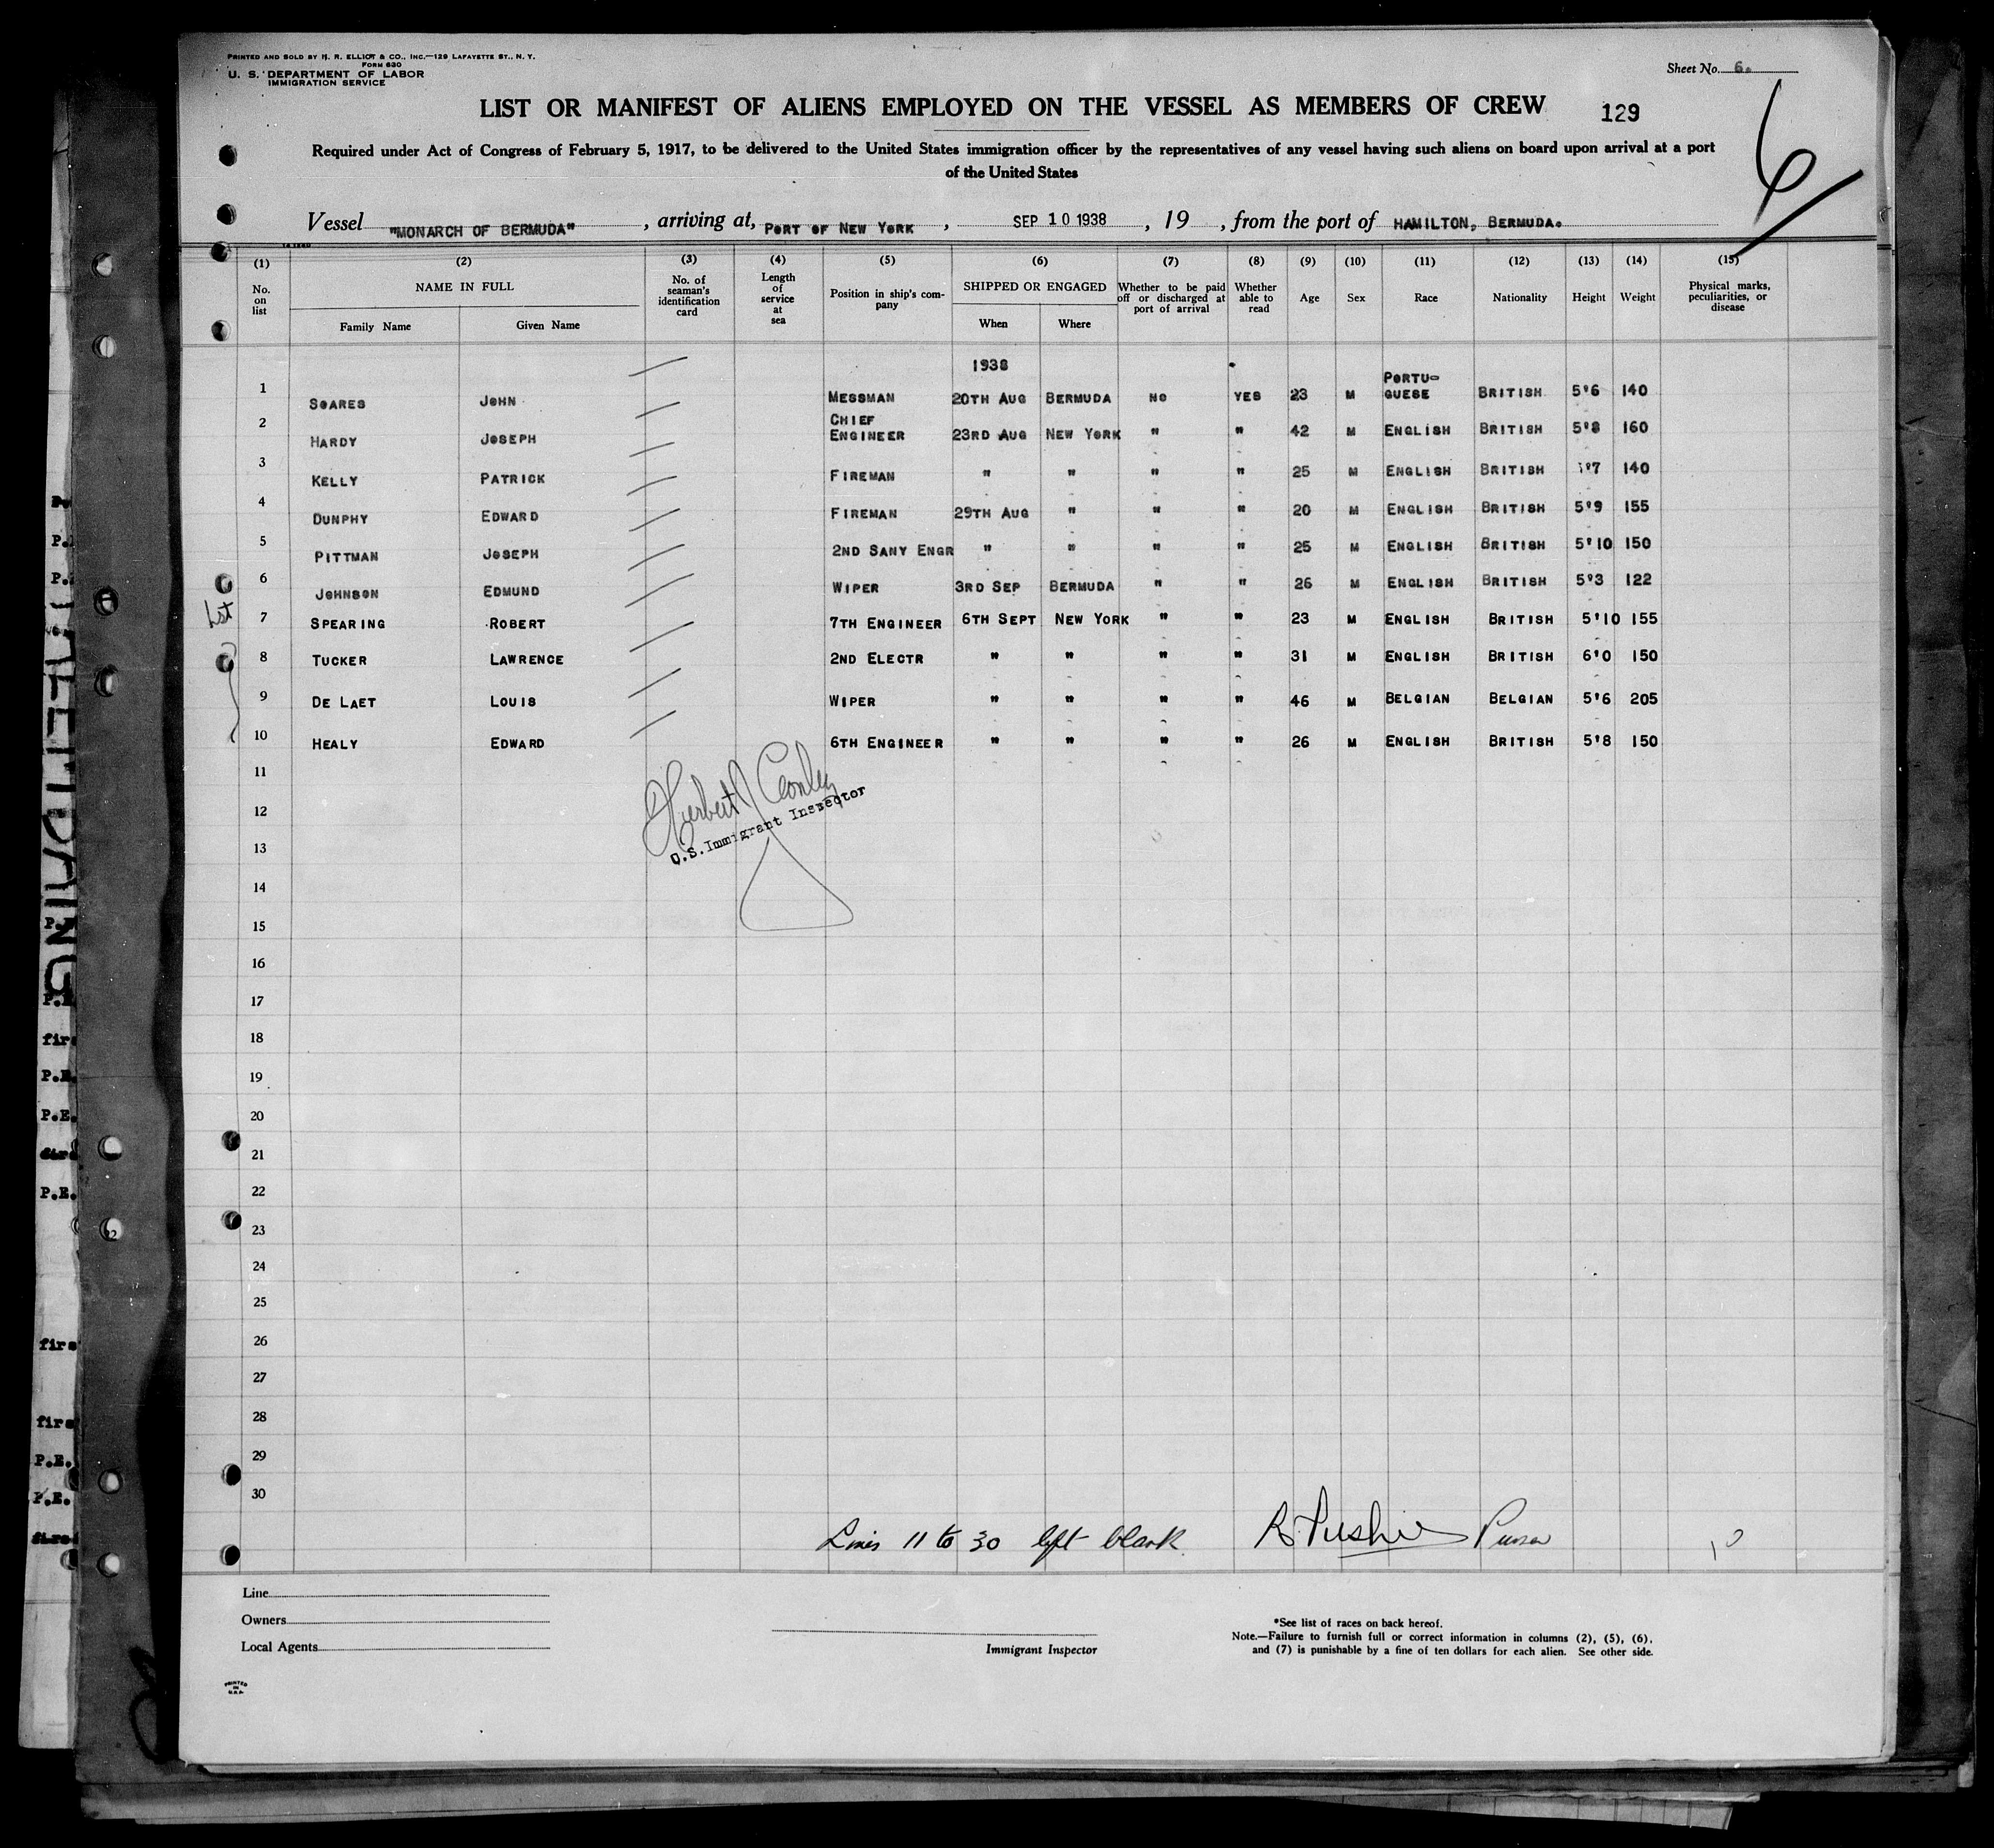 PRINTED AND SOLD BY H. R. ELLIOT & CO., INC.—129 LAFAYETTE ST., N. Y.
FORM 630
U. S. DEPARTMENT OF LABOR
IMMIGRATION SERVICE
Sheet No. 6.
LIST OR MANIFEST OF ALIENS EMPLOYED ON THE VESSEL AS MEMBERS OF CREW 129
6
Required under Act of Congress of February 5, 1917, to be delivered to the United States immigration officer by the representatives of any vessel having such aliens on board upon arrival at a port
of the United States
Vessel "MONARCH OF BERMUDA" , arriving at, PORT OF NEW YORK , SEP 10 1938 , 19 , from the port of HAMILTON, BERMUDA.
(1) (2) (3) (4) (5) (6) (7) (8) (9) (10) (11) (12) (13) (14) (15)
No. on list NAME IN FULL Family Name Given Name No. of seaman's identification card Length of service at sea Position in ship's company SHIPPED OR ENGAGED When Where Whether to be paid off or discharged at port of arrival Whether able to read Age Sex Race Nationality Height Weight Physical marks, peculiarities, or disease
1938
1 SOARES JOHN MESSMAN 20TH AUG BERMUDA NO YES 23 M PORTU-GUESE BRITISH 5'6 140
2 HARDY JOSEPH CHIEF ENGINEER 23RD AUG NEW YORK " " 42 M ENGLISH BRITISH 5'8 160
3 KELLY PATRICK FIREMAN " " " " 25 M ENGLISH BRITISH '7 140
4 DUNPHY EDWARD FIREMAN 29TH AUG " " " 20 M ENGLISH BRITISH 5'9 155
5 PITTMAN JOSEPH 2ND SANY ENGR " " " " 25 M ENGLISH BRITISH 5'10 150
6 JOHNSON EDMUND WIPER 3RD SEP BERMUDA " " 26 M ENGLISH BRITISH 5'3 122
7 SPEARING ROBERT 7TH ENGINEER 6TH SEPT NEW YORK " " 23 M ENGLISH BRITISH 5'10 155
8 TUCKER LAWRENCE 2ND ELECTR " " " " 31 M ENGLISH BRITISH 6'0 150
9 DE LAET LOUIS WIPER " " " " 46 M BELGIAN BELGIAN 5'6 205
10 HEALY EDWARD 6TH ENGINEER " " " " 26 M ENGLISH BRITISH 5'8 150
11
12
U.S. Immigrant Inspector
13
14
15
16
17
18
19
20
21
22
23
24
25
26
27
28
29
30
Lines 11 to 30 left blank. Purser
10
Line
Owners
Local Agents
Immigrant Inspector
*See list of races on back hereof.
Note.—Failure to furnish full or correct information in columns (2), (5), (6),
and (7) is punishable by a fine of ten dollars for each alien. See other side.
PRINTED
IN
U.S.A.